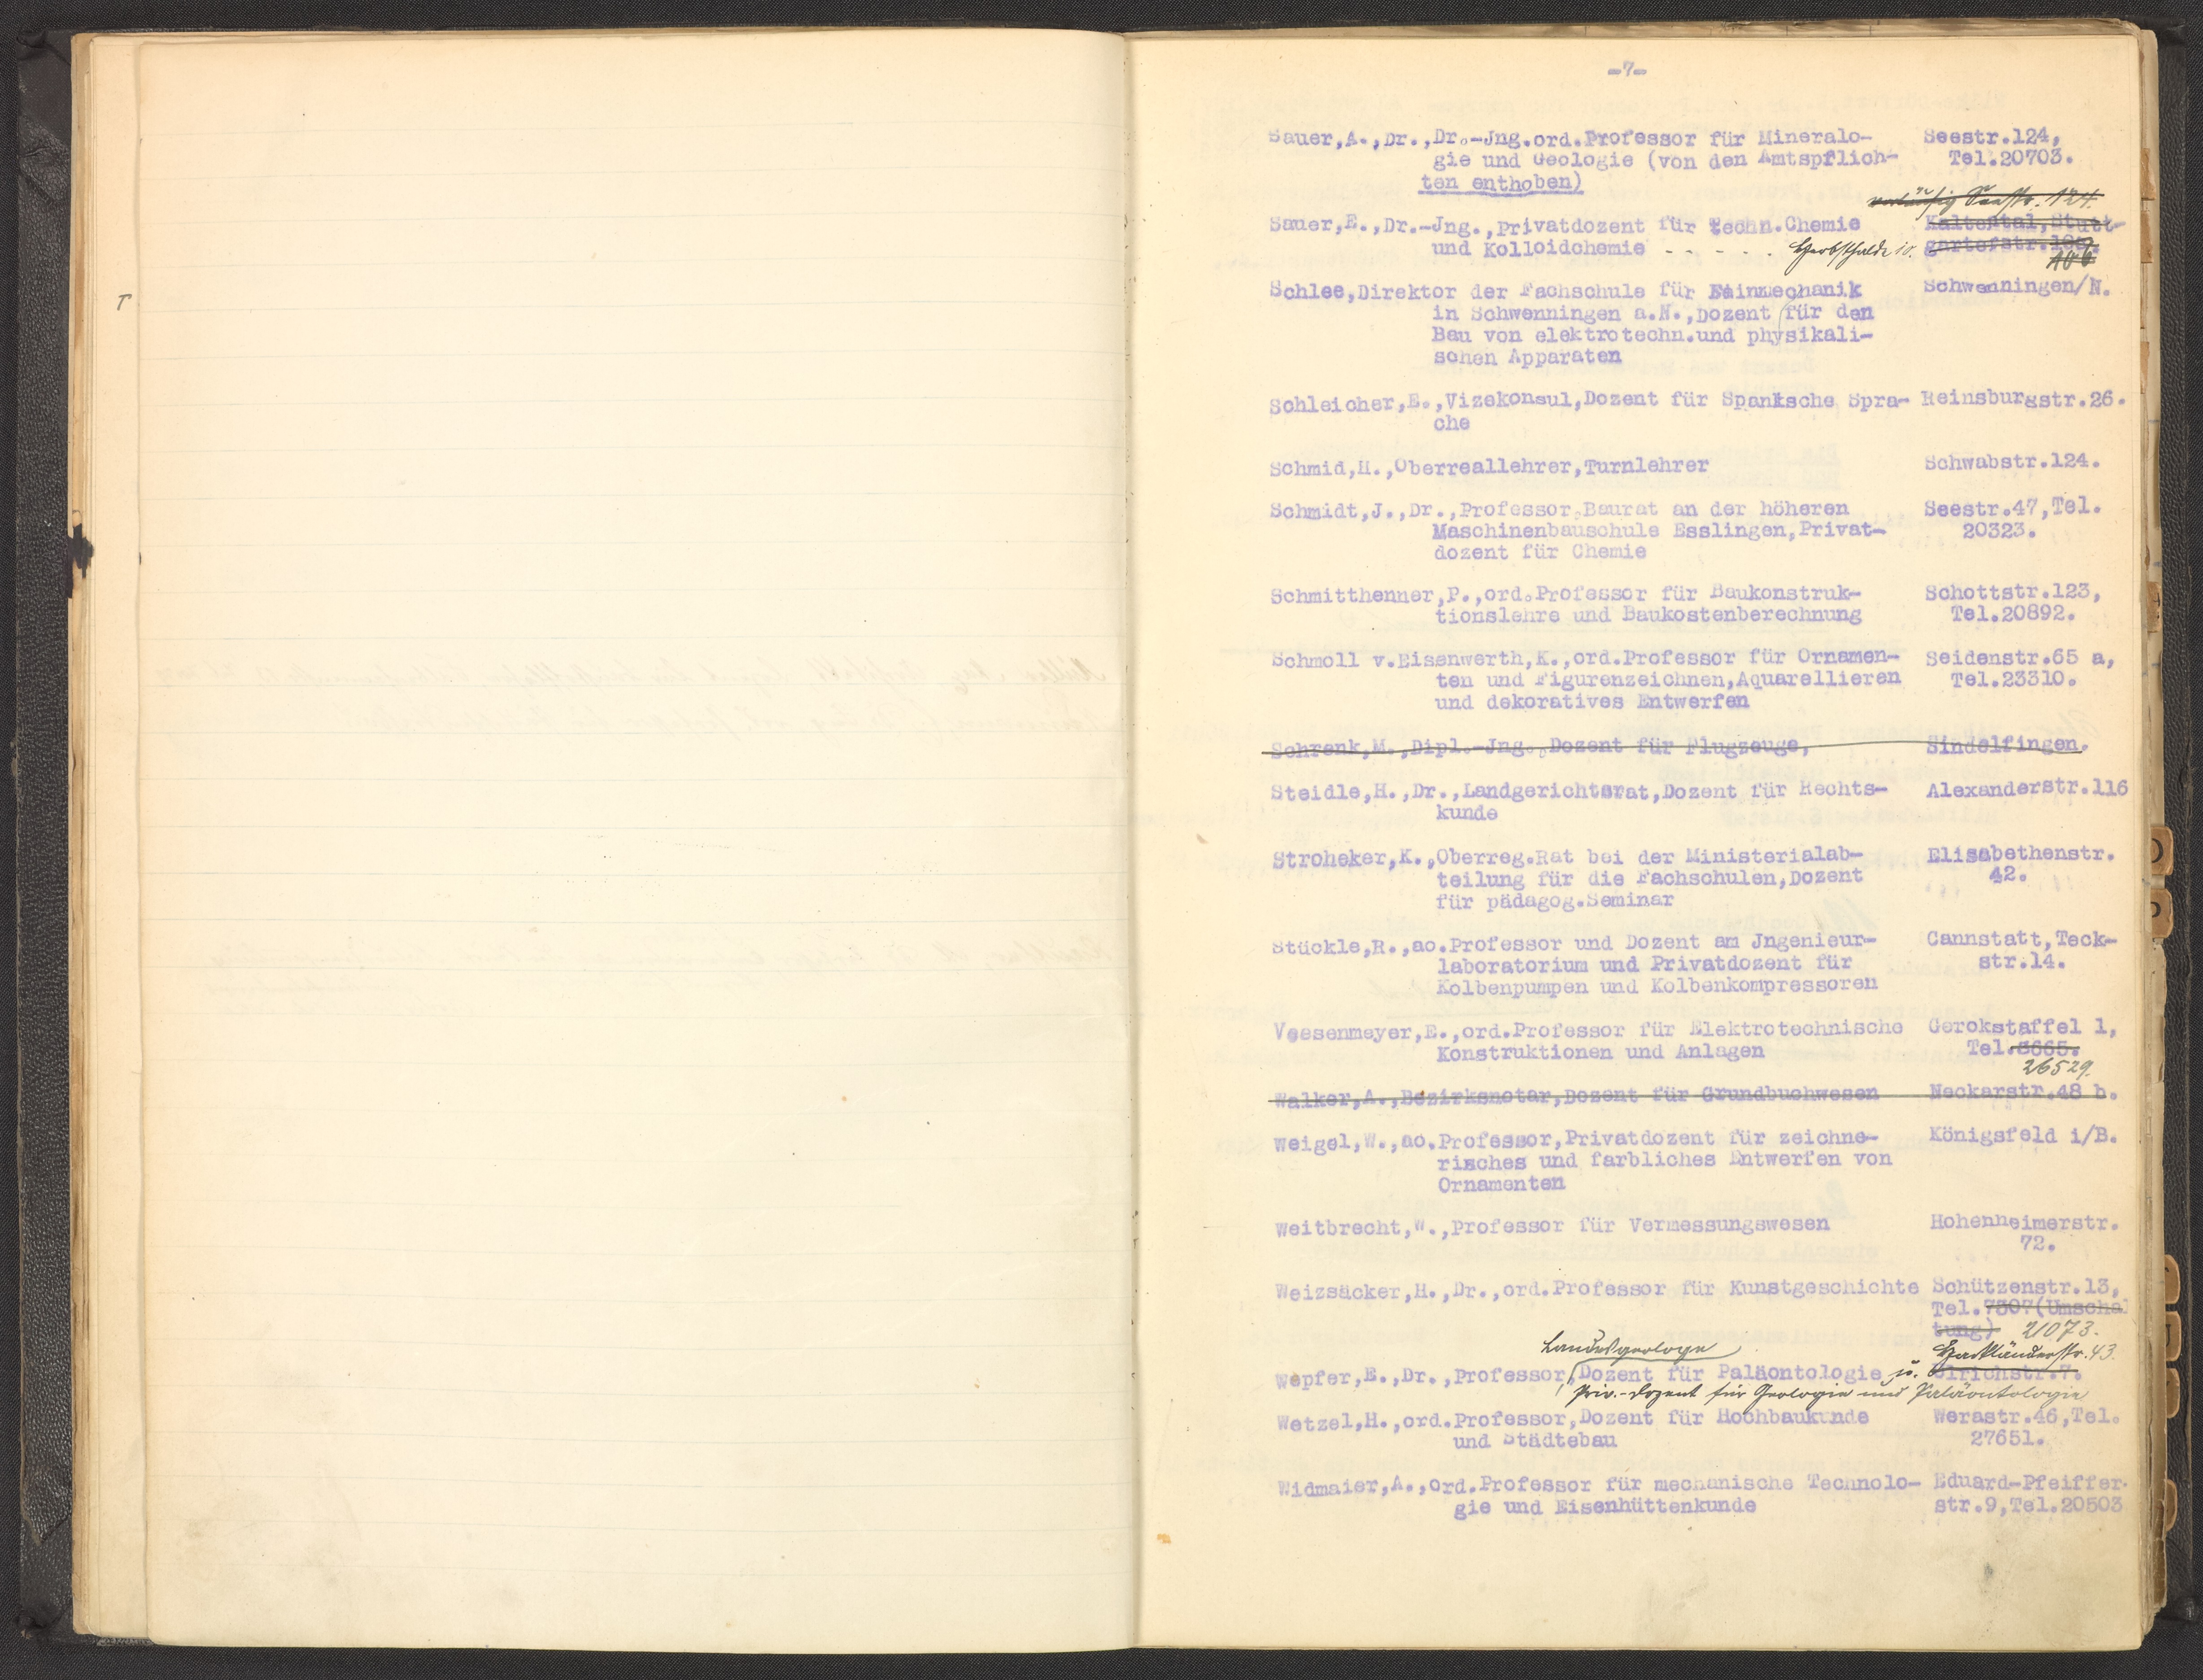 -7-
Sauer,A.,Dr.,Dr.-Jng.ord.Professor für Mineralo- Seestr.124,
gie und Geologie (von den Amtspflich- Tel.20703.
ten enthoben)
vorläufig Seestr. 124.
Sauer,E.,Dr.-Jng.,Privatdozent für techn.Chemie Kaltental,Stutt-
und Kolloidchemie - - - - - Herbsthalde 10. garterstr.
106
Schlee,Direktor der Fachschule für Feinmechanik Schwenningen/N.
in Schwenningen a.N.,Dozent für den
Bau von elektrotechn.und physikali-
schen Apparaten
Schleicher,E.,Vizekonsul,Dozent für Spanische Spra- Reinsburgstr.26.
che
Schmid,H.,Oberreallehrer,Turnlehrer Schwabstr.124.
Schmidt,J.,Dr.,Professor,Baurat an der höheren Seestr.47,Tel.
Maschinenbauschule Esslingen,Privat- 20323.
dozent für Chemie
Schmitthenner,P.,ord.Professor für Baukonstruk- Schottstr.123,
tionslehre und Baukostenberechnung Tel.20892.
Schmoll v.Eisenwerth,K.,ord.Professor für Ornamen- Seidenstr.65 a,
ten und Figurenzeichnen,Aquarellieren Tel.23310.
und dekoratives Entwerfen
Schrenk,M.,Dipl.-Jng.,Dozent für Flugzeuge, Sindelfingen.
Steidle,H.,Dr.,Landgerichtsrat,Dozent für Rechts- Alexanderstr.116
kunde
Stroheker,K.,Oberreg.Rat bei der Ministerialab- Elisabethenstr.
teilung für die Fachschulen,Dozent 42.
für pädagog.Seminar
Stückle,R.,ao.Professor und Dozent am Jngenieur- Cannstatt,Teck-
laboratorium und Privatdozent für str.14.
Kolbenpumpen und Kolbenkompressoren
Veesenmeyer,E.,ord.Professor für Elektrotechnische Gerokstaffel 1,
Konstruktionen und Anlagen Tel.8665.
26529.
Walker,A.,Bezirksnotar,Dozent für Grundbuchwesen Neckarstr.48 b.
Weigel,W.,ao.Professor,Privatdozent für zeichne- Königsfeld i/B.
risches und farbliches Entwerfen von
Ornamenten
Weitbrecht,W.,Professor für Vermessungswesen Hohenheimerstr.
72.
Weizsäcker,H.,Dr.,ord.Professor für Kunstgeschichte Schützenstr.13,
Tel.7307(Umschal
tung) 21073.
Landesgeologe Hackländerstr. 43.
Wepfer,E.,Dr.,Professor,Dozent für Paläontologie u. Ulrichstr.7.
Priv.-Dozent für Geologie und Paläontologie
Wetzel,H.,ord.Professor,Dozent für Hochbaukunde Werastr.46,Tel.
und Städtebau 27651.
Widmaier,A.,ord.Professor für mechanische Technolo- Eduard-Pfeiffer-
gie und Eisenhüttenkunde str.9,Tel.20503